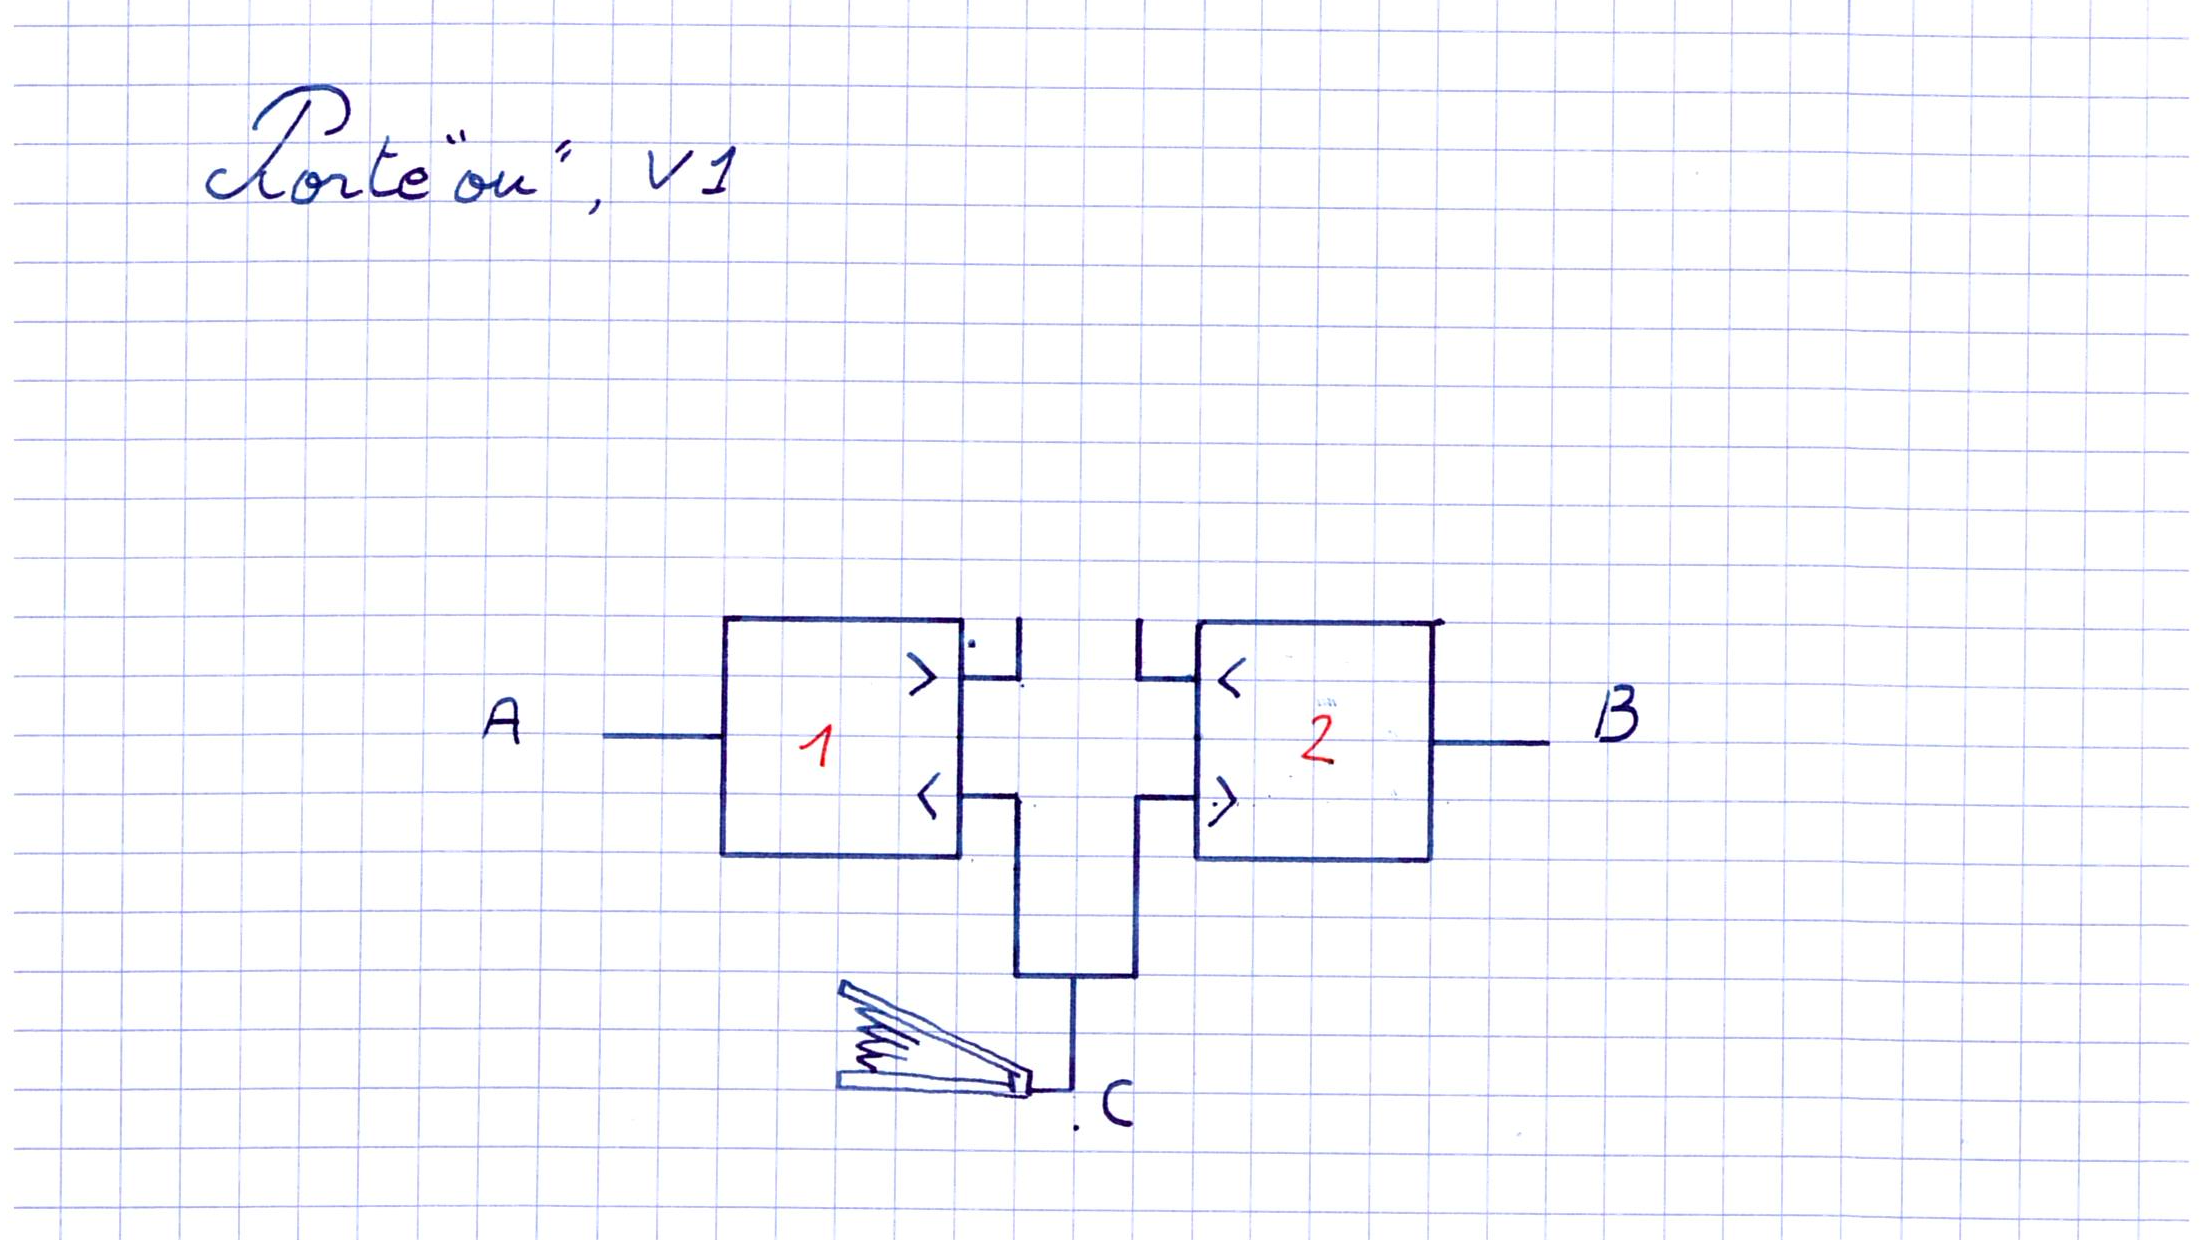 Porte "ou", V1
A 1 2 B
C